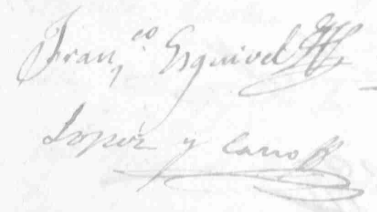 Fran.co Esquivel
Lopez y Caro